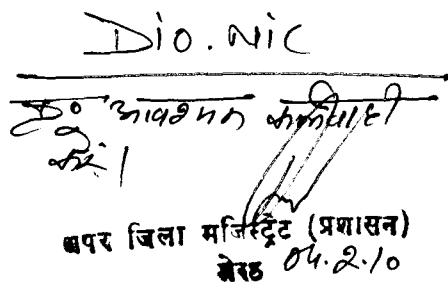 Dio. Nic
कृ० आवश्यक कार्यवाही
करें।
अपर जिला मजिस्ट्रेट (प्रशासन)
मेरठ 04.2.10